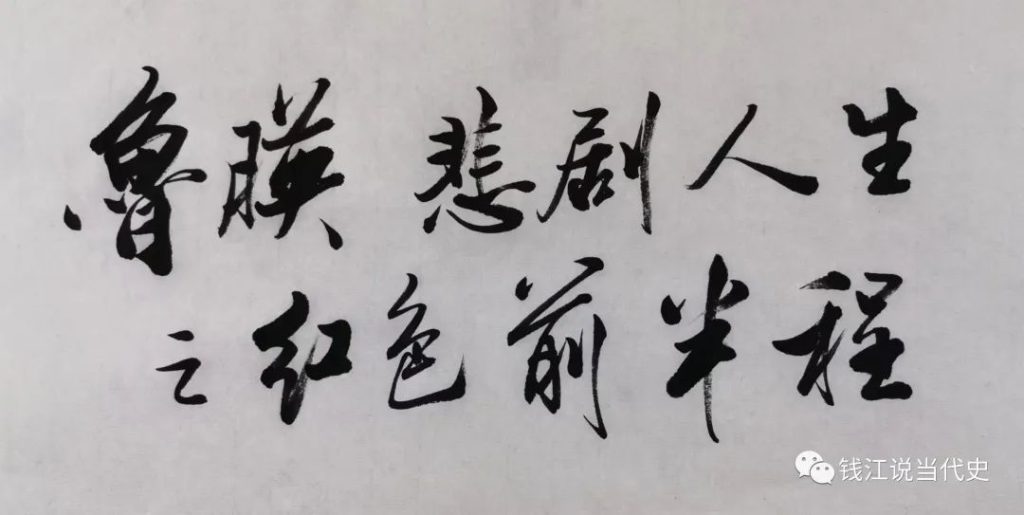 鲁瑛 悲剧人生
之红色前半程
钱江说当代史